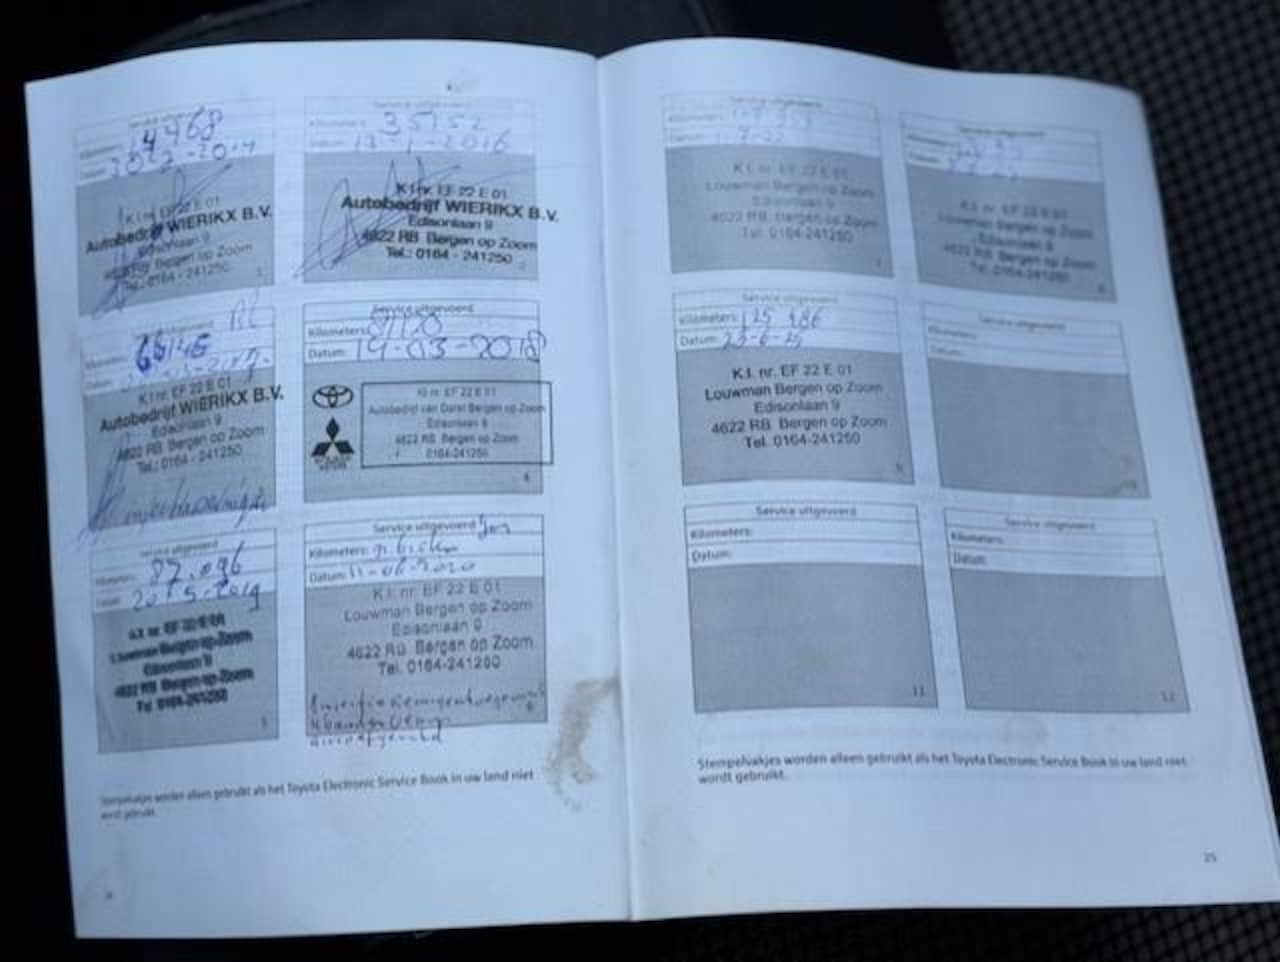 Service uitgevoerd
14468
K.I. nr. EF 22 E 01
Autobedrijf WIERIKX B.V.
Edisonlaan 9
4622 RB Bergen op Zoom
Tel.: 0164 - 241250
1
Service uitgevoerd
Kilometers: 35152
Datum: 13-1-2016
K.I. nr. EF 22 E 01
Autobedrijf WIERIKX B.V.
Edisonlaan 9
4622 RB Bergen op Zoom
Tel.: 0164 - 241250
2
Service uitgevoerd
Datum:
K.I. nr. EF 22 E 01
Autobedrijf WIERIKX B.V.
Edisonlaan 9
4622 RB Bergen op Zoom
Tel.: 0164 - 241250
Service uitgevoerd
Kilometers:
Datum: 14-03-2018
K.I. nr. EF 22 E 01
Autobedrijf van Dorst Bergen op Zoom
Edisonlaan 9
4622 RB Bergen op Zoom
0164-241250
4
Service uitgevoerd
Kilometers: 87.096
Datum: 20-5-2019
K.I. nr. EF 22 E 01
Louwman Bergen op Zoom
Edisonlaan 9
4622 RB Bergen op Zoom
Tel. 0164-241250
5
Service uitgevoerd
Kilometers:
Datum: 11-06-2020
K.I. nr. EF 22 E 01
Louwman Bergen op Zoom
Edisonlaan 9
4622 RB Bergen op Zoom
Tel. 0164-241250
6
Stempelvakjes worden alleen gebruikt als het Toyota Electronic Service Book in uw land niet
wordt gebruikt.
Service uitgevoerd
Kilometers:
Datum:
K.I. nr. EF 22 E 01
Louwman Bergen op Zoom
Edisonlaan 9
4622 RB Bergen op Zoom
Tel. 0164-241250
7
Service uitgevoerd
Kilometers:
Datum:
K.I. nr. EF 22 E 01
Louwman Bergen op Zoom
Edisonlaan 9
4622 RB Bergen op Zoom
Tel. 0164-241250
8
Service uitgevoerd
Kilometers: 125 486
Datum:
K.I. nr. EF 22 E 01
Louwman Bergen op Zoom
Edisonlaan 9
4622 RB Bergen op Zoom
Tel. 0164-241250
9
Service uitgevoerd
Kilometers:
Datum:
10
Service uitgevoerd
Kilometers:
Datum:
11
Service uitgevoerd
Kilometers:
Datum:
12
Stempelvakjes worden alleen gebruikt als het Toyota Electronic Service Book in uw land niet
wordt gebruikt.
25